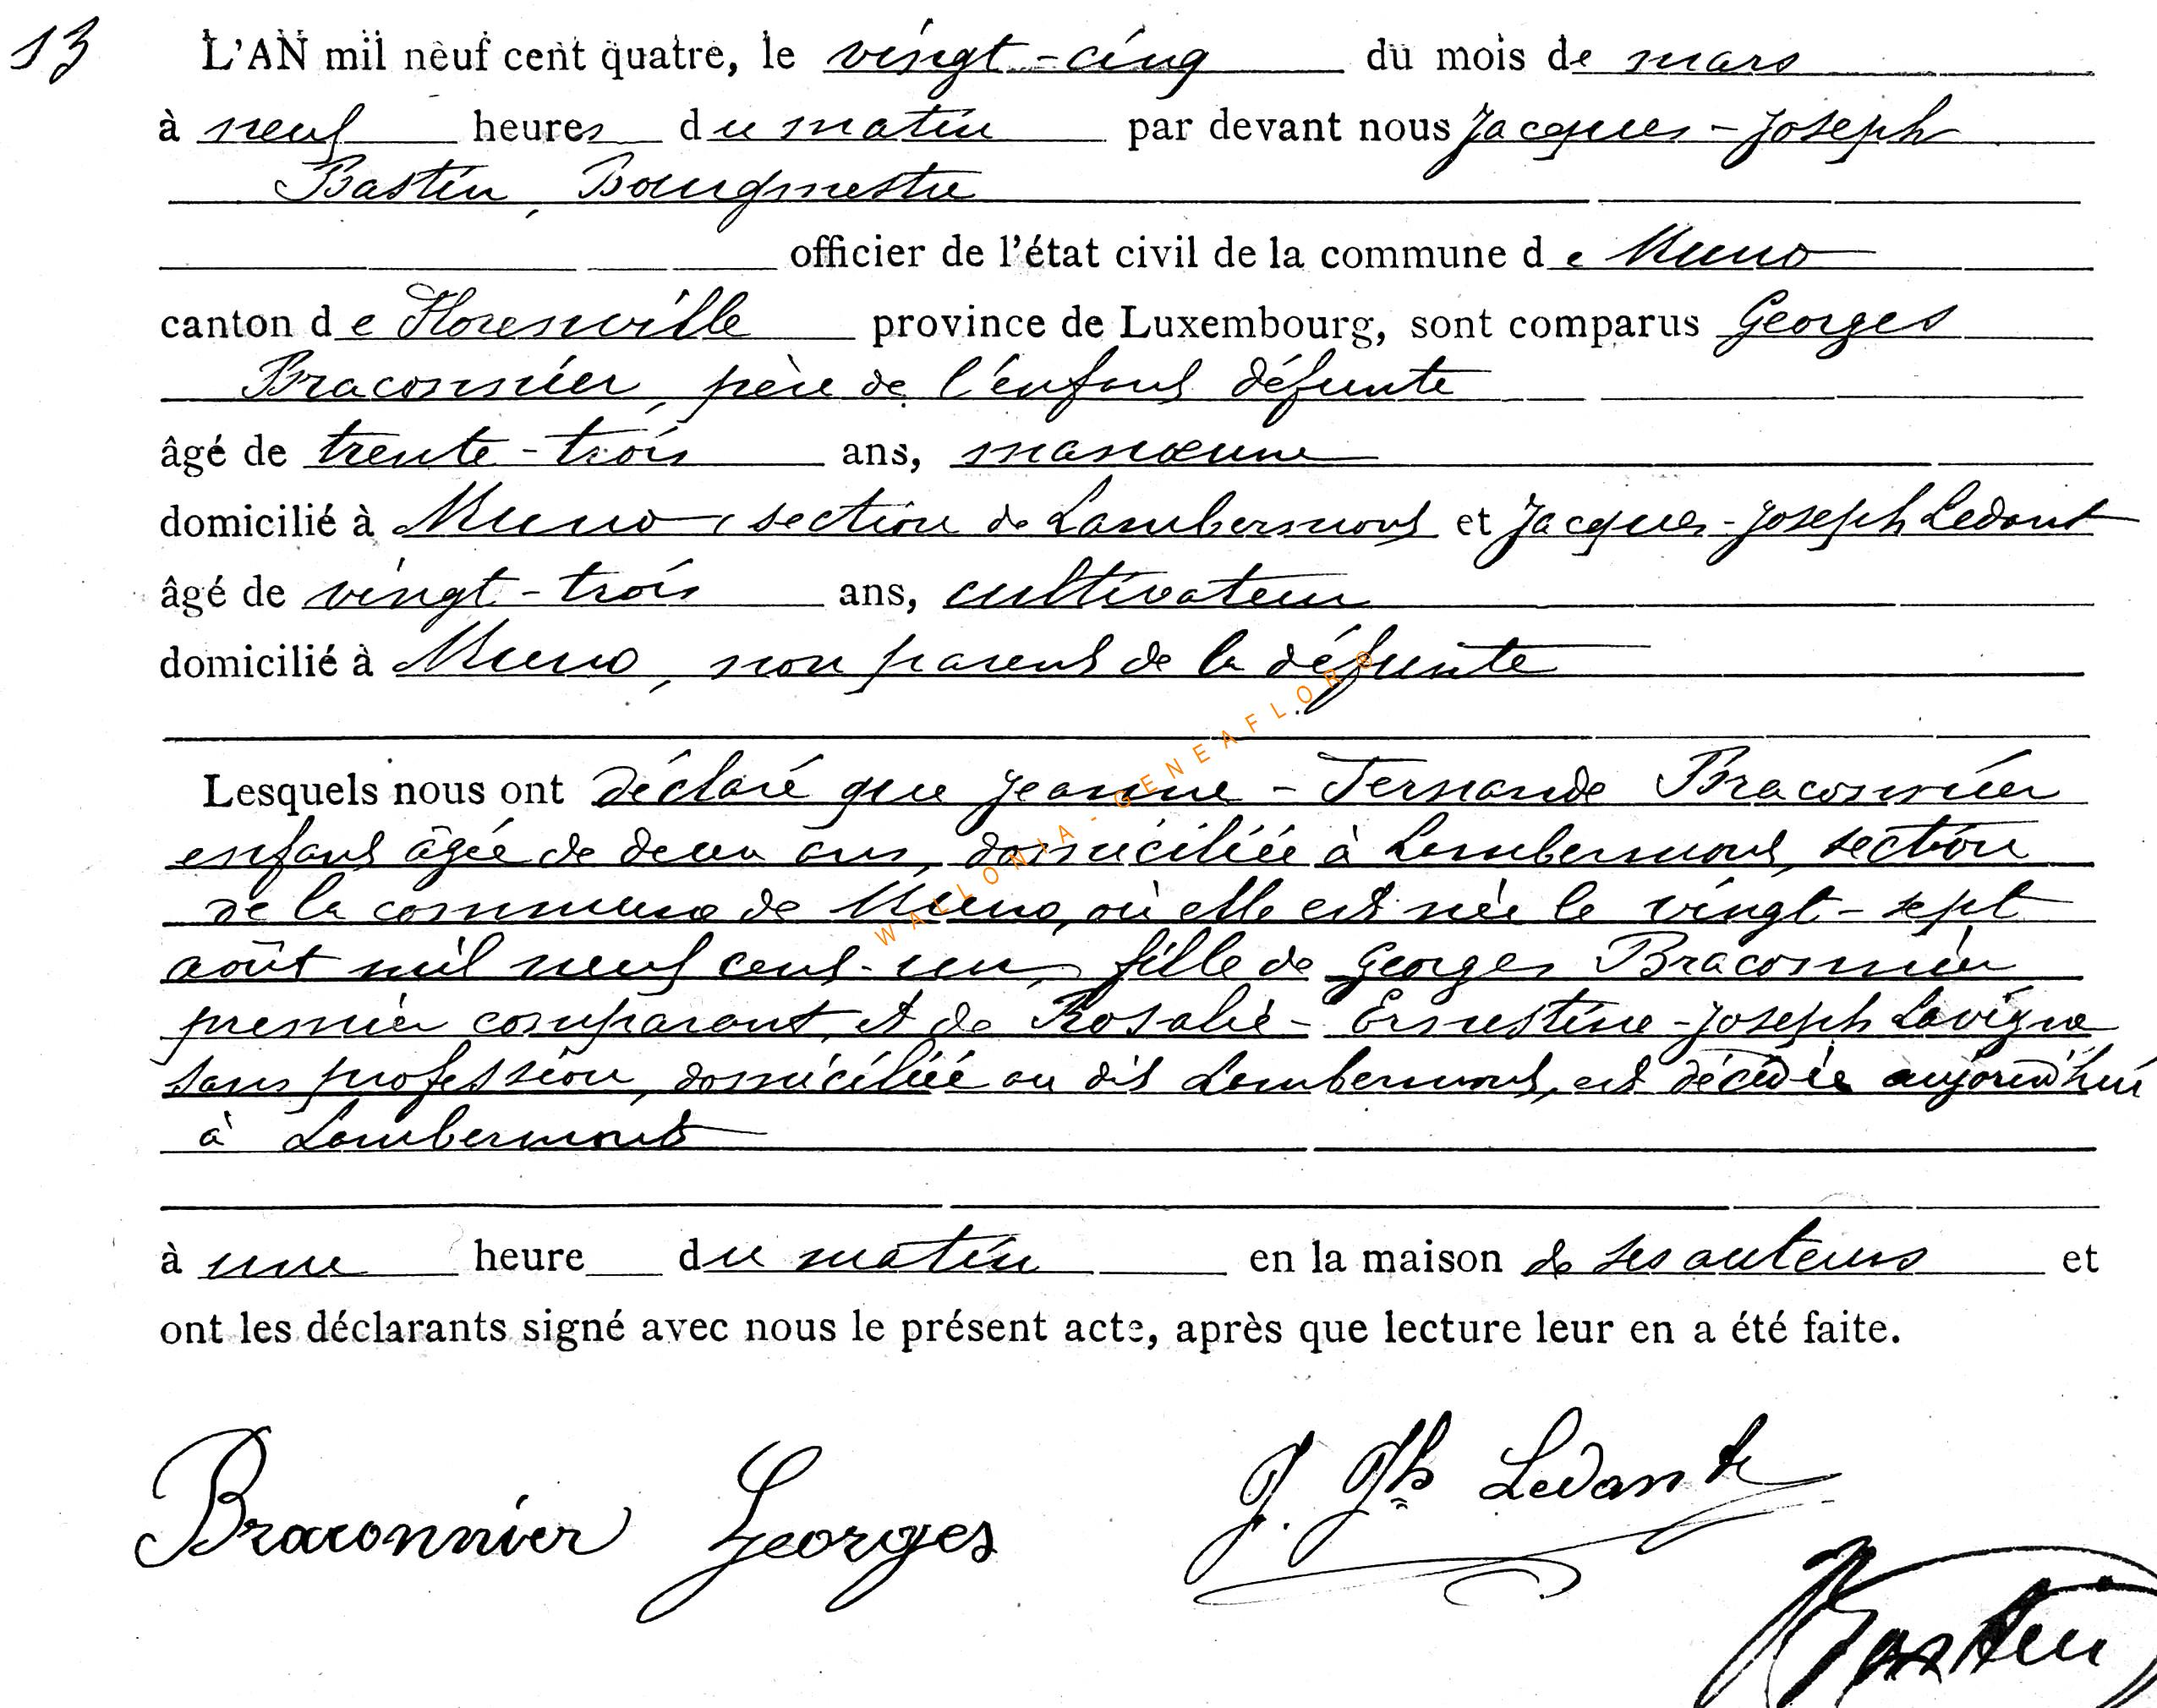 13
L'AN mil neuf cent quatre, le vingt-cinq du mois de mars
à neuf heures du matin par devant nous Jacques-Joseph
Bastin, Bourgmestre
officier de l'état civil de la commune de Muno
canton de Florenville province de Luxembourg, sont comparus Georges
Braconnier, père de l'enfant défunte
âgé de trente-trois ans, manœuvre
domicilié à Muno, section de Lambermont et Jacques-Joseph Ledant
âgé de vingt-trois ans, cultivateur
domicilié à Muno, non parent de la défunte
Lesquels nous ont déclaré que Jeanne-Fernande Braconnier
enfant âgée de deux ans, domiciliée à Lambermont, section
de la commune de Muno, où elle est née le vingt-sept
août mil neuf cent-un, fille de Georges Braconnier
premier comparant, et de Rosalie-Ernestine-Joseph Lavigne
sans profession, domiciliée au dit Lambermont, est décédée aujourd'hui
à Lambermont
à une heure du matin en la maison de ses auteurs et
ont les déclarants signé avec nous le présent acte, après que lecture leur en a été faite.
Braconnier Georges
J. Jh Ledant
Bastin
WALLONIA-GENEAFLOR®